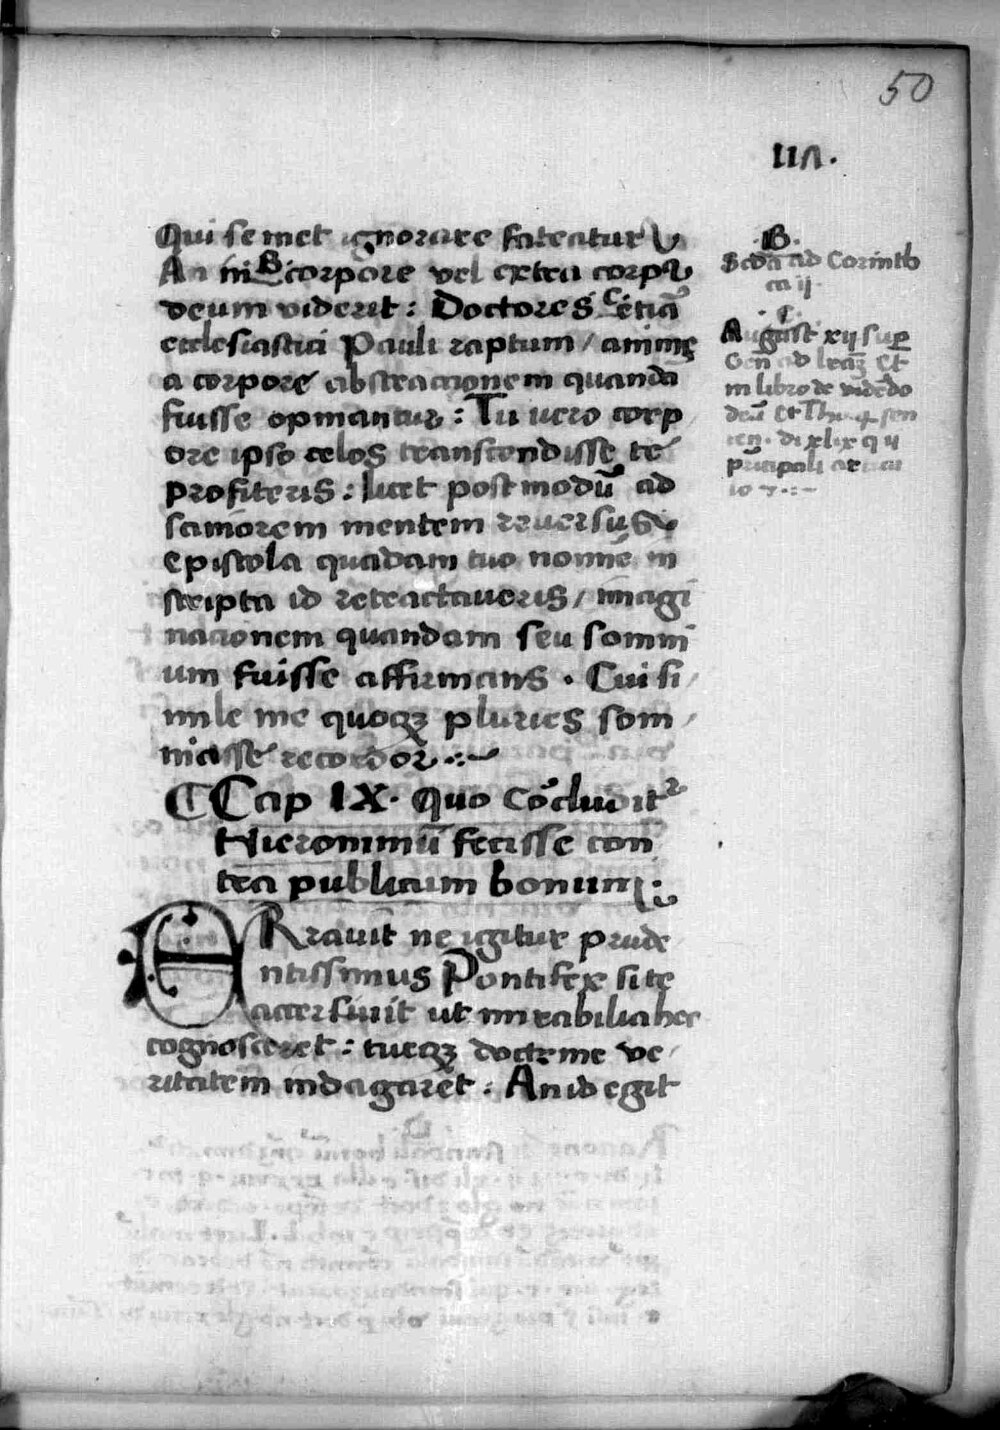 50
IIΛ.
Qui semet ignorare fateatur
An in B corpore vel extra corpꝰ
deum viderit : Doctores C etiā
ecclesiastici Pauli raptum / anime
a corpore abstractionem quandā
fuisse opinantur : Tu vero corp
ore ipso celos transcendisse te
profiteris : licet postmodū ad
saniorem mentem reversus
epistola quadam tuo nomīe in
scripta id retractaveris / imagi
nationem quandam seu somni
um fuisse affirmans . Cui si /
mile me quoqꝫ pluries som /
niasse recordor .:~
¶ Cap IX. Quo Cōcludit
Hieronimū fecisse con
tra publicum bonum :
ERravit ne igitur prude
ntissimus Pontifex si te
accersivit ut mirabilia hec
cognosceret : tueqꝫ doctrine ve /
ritatem indagaret : An id egit
.B.
Scda ad Corinth
ca ij
.C.
August xij sup
Gen̄ ad Et
in libro de vidēdo
deū Et sen
ten. di xlix q ij
principali